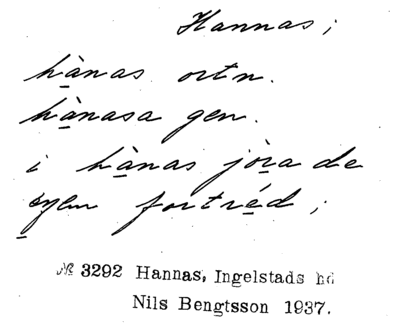 Hannas;
hànas ortn.
hànasa gen.
i hànas jòra de
fortréd;
№ 3292 Hannas, Ingelstads hd
Nils Bengtsson 1937.